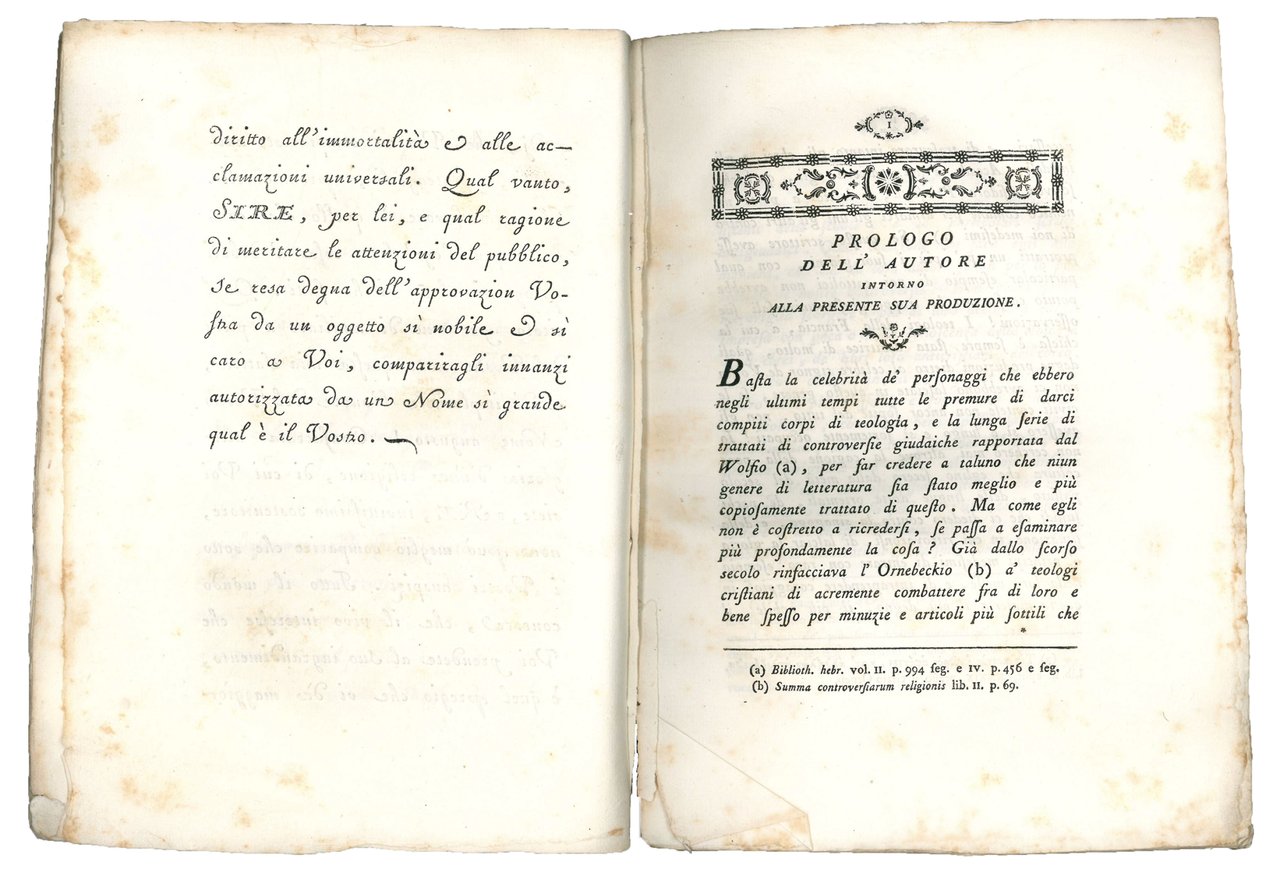 diritto all'immortalità e alle ac-
clamazioni universali. Qual vanto,
SIRE, per lei, e qual ragione
di meritare le attenzioni del pubblico,
se resa degna dell'approvazion Vo-
stra da un oggetto sì nobile e sì
caro a Voi, compariragli innanzi
autorizzata da un Nome sì grande
qual è il Vostro.
I
PROLOGO
DELL' AUTORE
INTORNO
ALLA PRESENTE SUA PRODUZIONE.
Baſta la celebrità de' perſonaggi che ebbero
negli ultimi tempi tutte le premure di darci
compiti corpi di teologia, e la lunga ſerie di
trattati di controverſie giudaiche rapportata dal
Wolfio (a), per far credere a taluno che niun
genere di letteratura ſia ſtato meglio e più
copioſamente trattato di queſto. Ma come egli
non è coſtretto a ricrederſi, ſe paſſa a eſaminare
più profondamente la coſa? Già dallo ſcorſo
secolo rinfacciava l'Ornebeckio (b) a' teologi
criſtiani di acremente combattere fra di loro e
bene ſpeſſo per minuzie e articoli più ſottili che
*
(a) Biblioth. hebr. vol. II. p. 994 ſeg. e IV. p. 456 e ſeg.
(b) Summa controverſiarum religionis lib. II. p. 69.